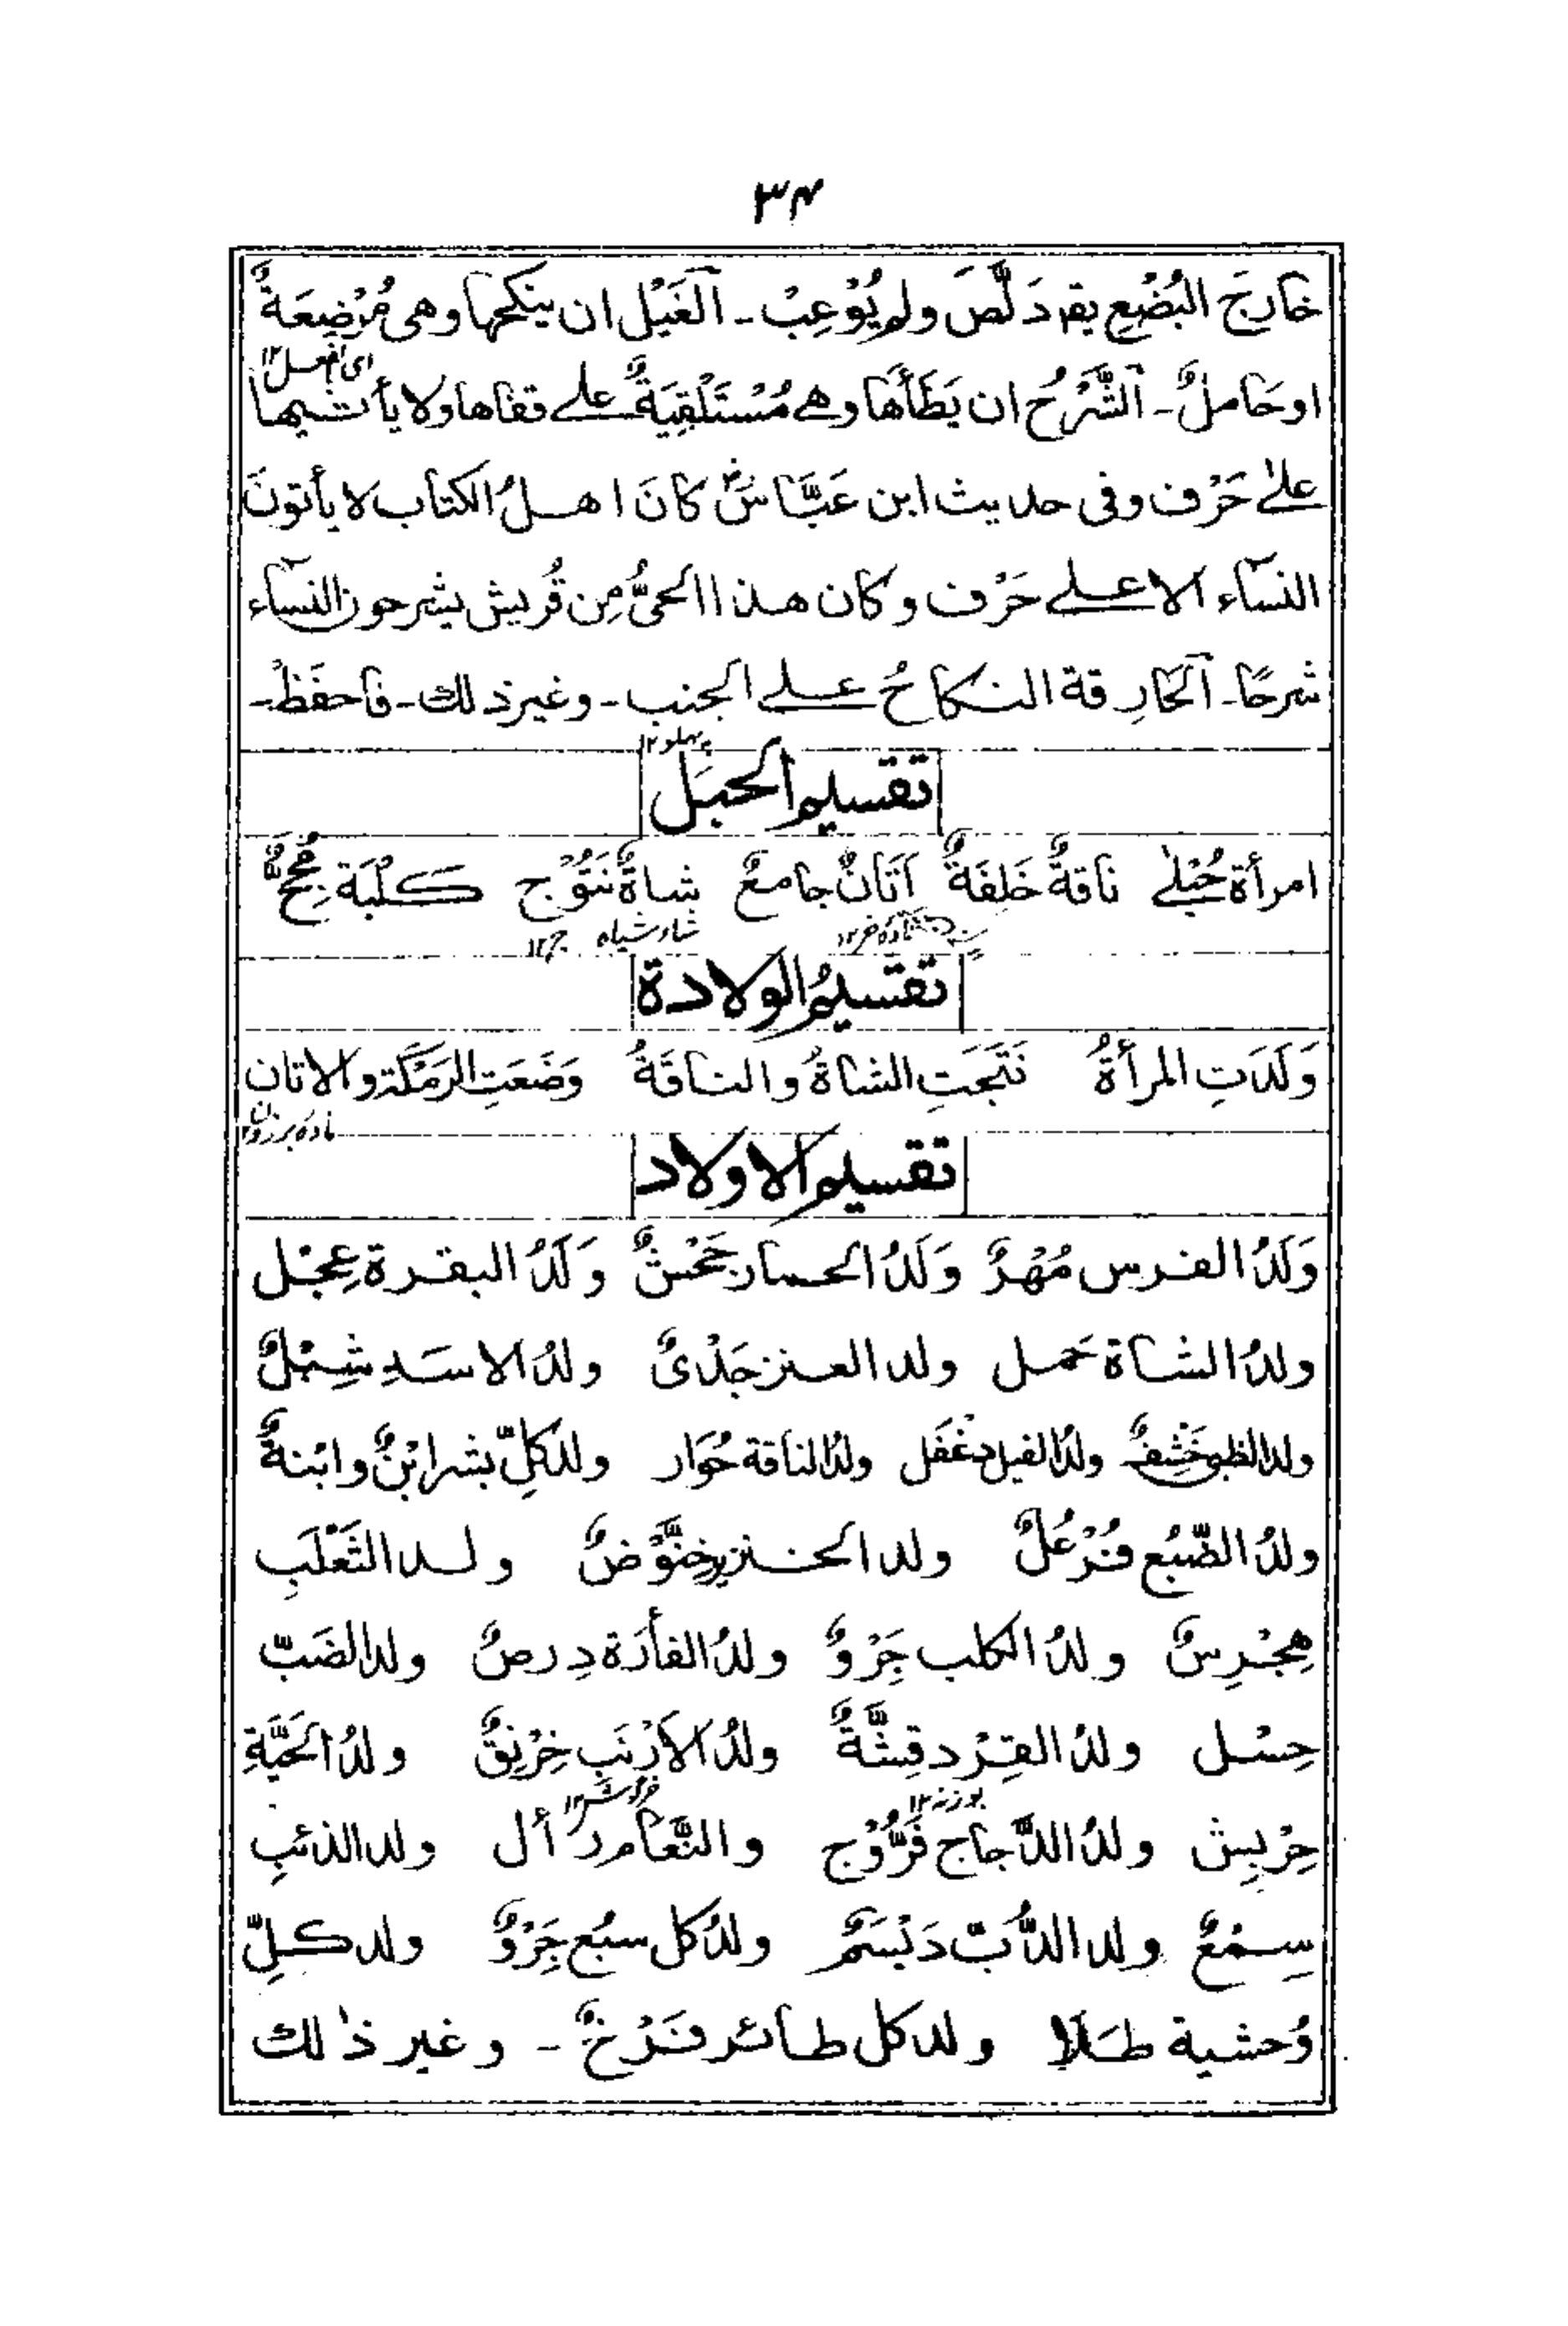 ٣٤
خارجَ البُضْعِ يقم دَلَّصَ ولم يُوْعِبْ ـ آلغَيْل ان ينكحها وهى مُرْضِعَةٌ
او حَاملٌ ـ آلشَّرْحُ ان يَطَأَهَا وهى مُسْتَلْقِيَةٌ على قفاها ولا يأتيها
علىٰ حَرْف وفى حديث ابن عَبَّاسٍؓ كانَ اهلُ الكتاب لا يأتونَ
النسآء الا على حَرْف وكان هذا الحىُّ مِن قُريش يشرحون النسآء
شرحًا ـ آلحَارِقة النكاحُ على الجنب ـ وغير ذلك ـ فاحفَظْ ـ
پہلو ١٢
تقسيم الحبَل
امرأة حُبْلىٰ ناقةٌ خَلِفَةٌ آتَانٌ جامعٌ شاةٌ نَتُوْج كَلْبَة مُجِحٌّ
تقسيمُ الولادة
وَلَدَتِ المرأةُ نَتَجَتِ الشاةُ والناقَةُ وَضَعَتِ الرَمَكَة والاتان
تقسيم الاولاد
وَلَدُ الفرس مُهْرٌ وَلَدُ الحمار جَحْشٌ وَلَدُ البقرة عِجْل
ولدُ الشاة حَمل ولد العنز جَدْىٌ ولدُ الاسَدِ شِبْلٌ
ولد الظبى خَشِفٌ ولدُ الفيل دغْفَل ولدُ الناقة حُوَار ولد كلِّ بشر ابْنٌ وابْنةٌ
ولدُ الضَّبُع فُرْعُلٌ ولد الخنزير خِنَّوْضٌ ولد الثَعْلَبِ
هِجْرِسٌ ولدُ الكلب جَرْوٌ ولدُ الفأرَة دِرصٌ ولد الضَبّ
حِسْل ولدُ القِرْد قِشَّةٌ ولدُ الاَرْنَبِ خِرْنِقٌ ولدُ الحَيَّةِ
بوزنہ ١٢
حِرْبِش ولدُ الدَّجاج فَرُّوْج والنَّعَام رأل ولد الذئبِ
سِمْعٌ ولد الدُّبّ دَيْسَمٌ ولدُ كل سبُع جَرْوٌ ولد كلِّ
وُحشية طَلَا ولد كل طائر فَرْخٌ ـ وغير ذٰلك